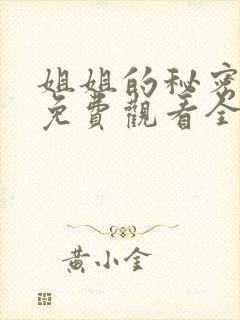 姐姐的秘密
免費觀看全
黃小金